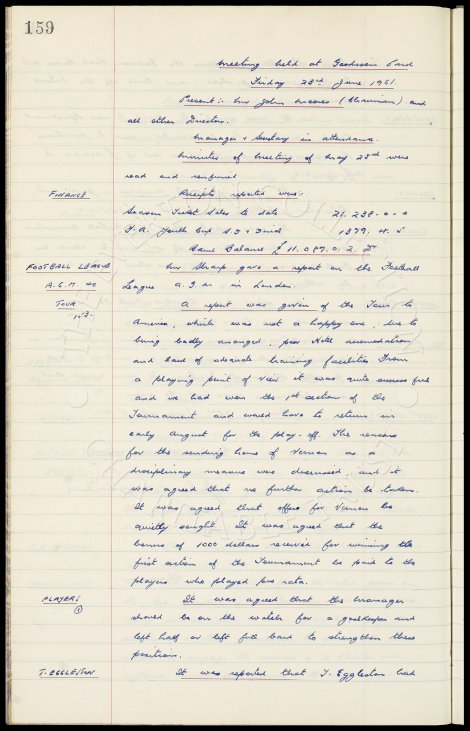 159
Meeting held at Goodison Park
Friday 23rd June 1961.
Present:- Mr John Moores (Chairman) and
all other Directors.
Manager & Secretary in attendance.
Minutes of Meeting of May 23rd were
read and confirmed
FINANCE
Receipts reported were:-
Season Ticket Sales to date 21.238.0.0
F.A. Youth Cup 1379. 4. 5
Bank Balance £ 11.087.0.2
FOOTBALL LEAGUE
Mr Sharp gave a report on the Football
A.G.M.
League A.G.M in London.
TOUR
A report was given of the Tour to
America, which was not a happy one, due to
being badly arranged, poor Hotel accomodation
and lack of adequate training facilities From
a playing point of view it was quite successful
and we had won the 1st section of the
Tournament and would have to return in
early August for the play-off. The reasons
for the sending home of Vernon as a
disciplinary measure was discussed, and it
was agreed that no further action be taken.
It was agreed that offers for Vernon be
quietly sought. It was agreed that the
bonus of 1000 dollars received for winning the
first section of the Tournament be paid to the
players who played pro rata.
PLAYERS
It was agreed that the Manager
should be on the watch for a goalkeeper and
left half or left full back to strengthen these
positions.
T. EGGLESTON
It was reported that T. Eggleston had